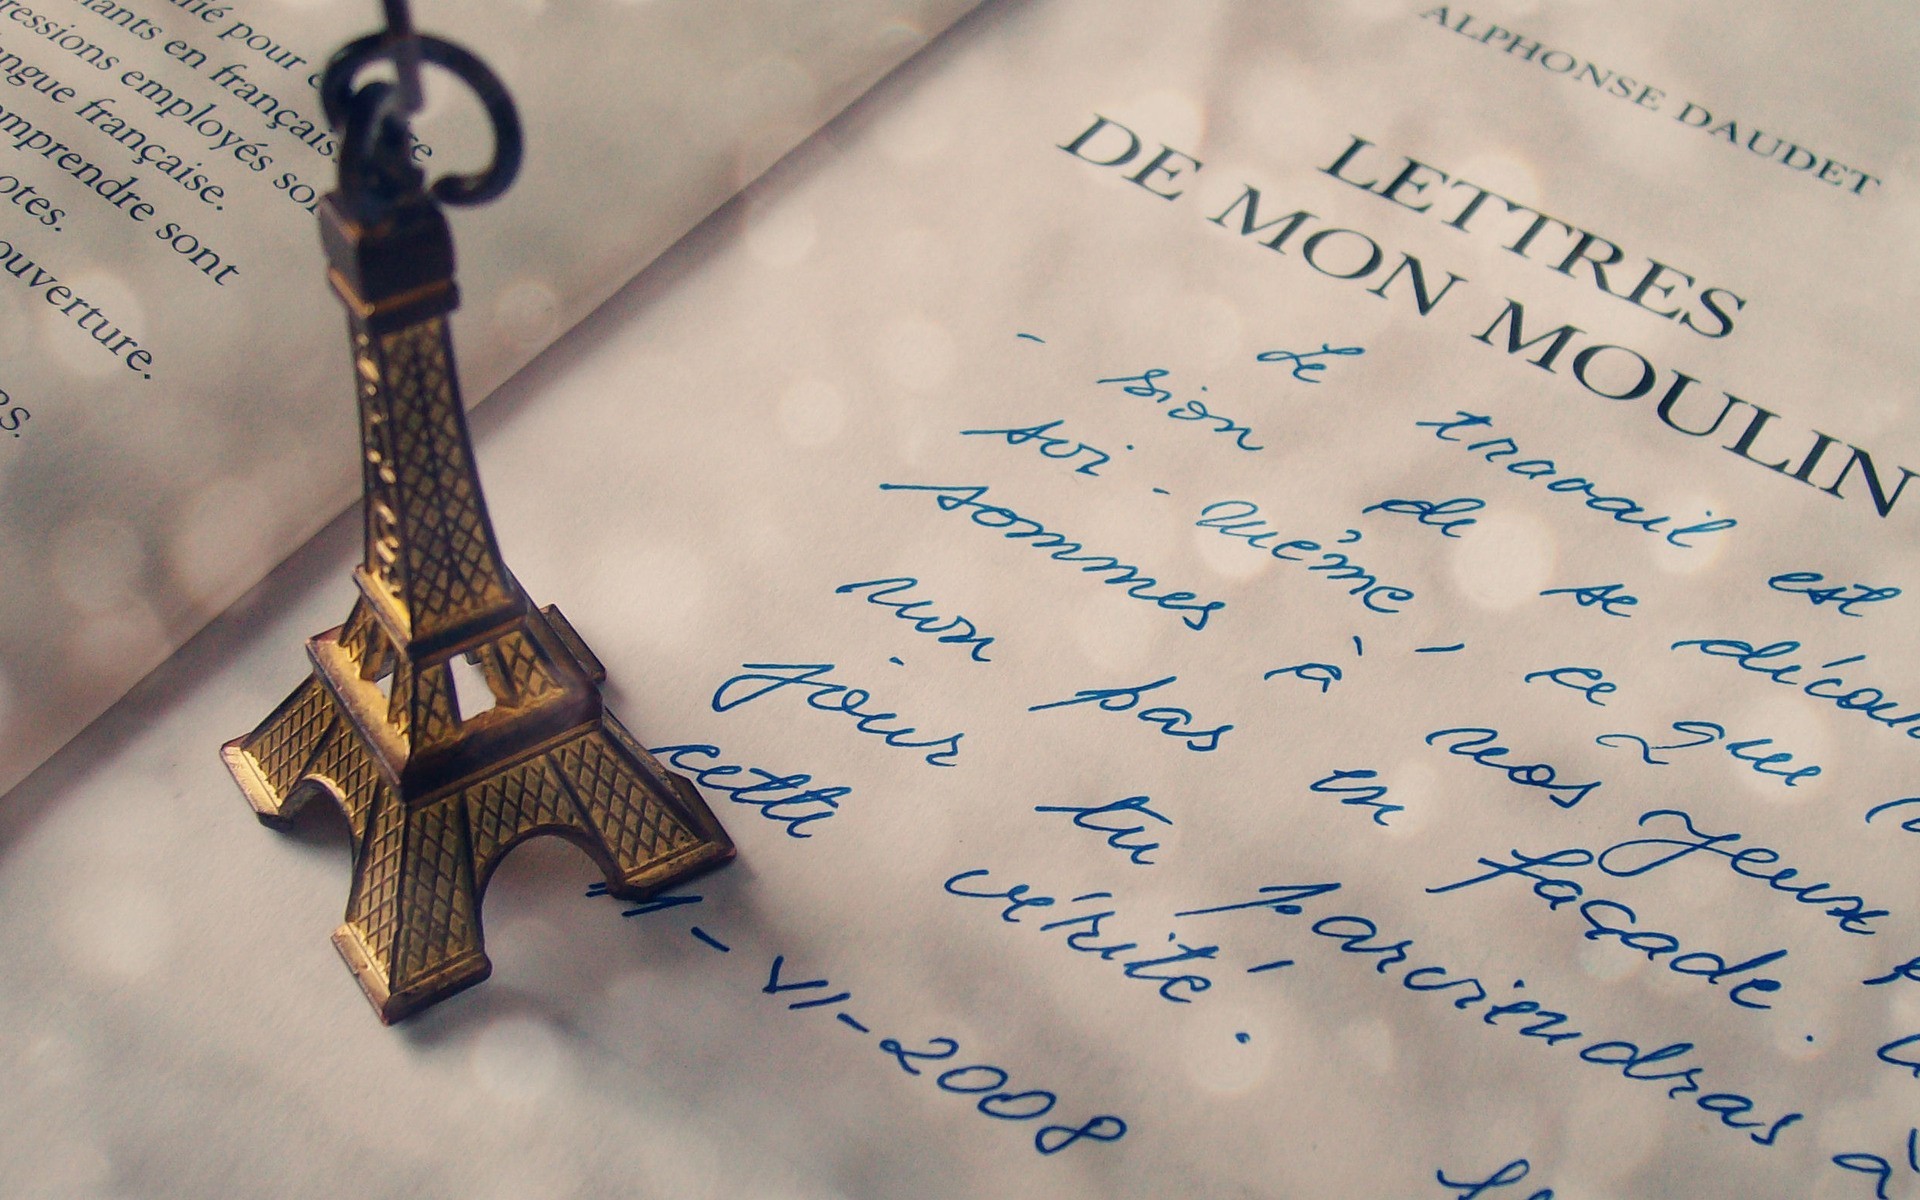 pour
en français.
ressions employés
langue française.
comprendre sont
ouverture.
ALPHONSE DAUDET
LETTRES
DE MON MOULIN
Le travail est
- sion de se découv
soi-même, ce que
sommes à nos yeux
non pas en façade.
jour tu parviendras à
cette vérité.
11-VI-2008